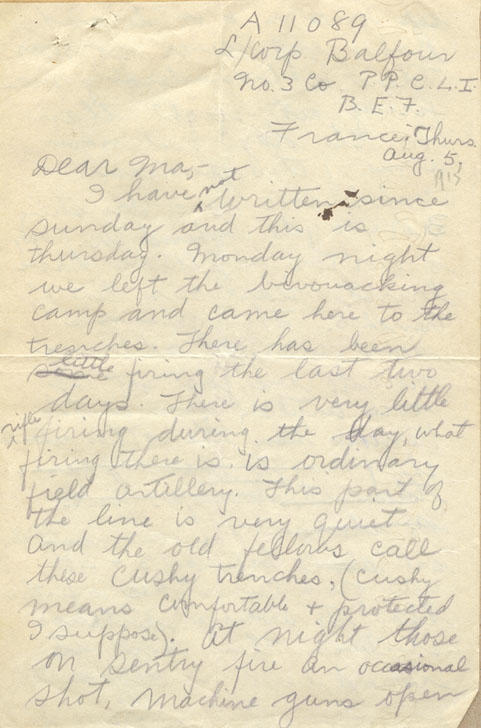 A 11089
L/Corp Balfour
No. 3 Co P.P.C.L.I.
B.E.F.
France, Thurs.
Aug. 5,
1915
Dear Ma,-
I have not written since
sunday and this is
thursday. Monday night
we left the bivouacking
camp and came here to the
trenches. There has been
little firing the last two
days. There is very little
rifle firing during the day, what
firing there is, is ordinary
field artillery. This part of
the line is very quiet
and the old fellows call
these cushy trenches, (cushy
means comfortable + protected
I suppose). At night those
on sentry fire an occasional
shot, machine guns open